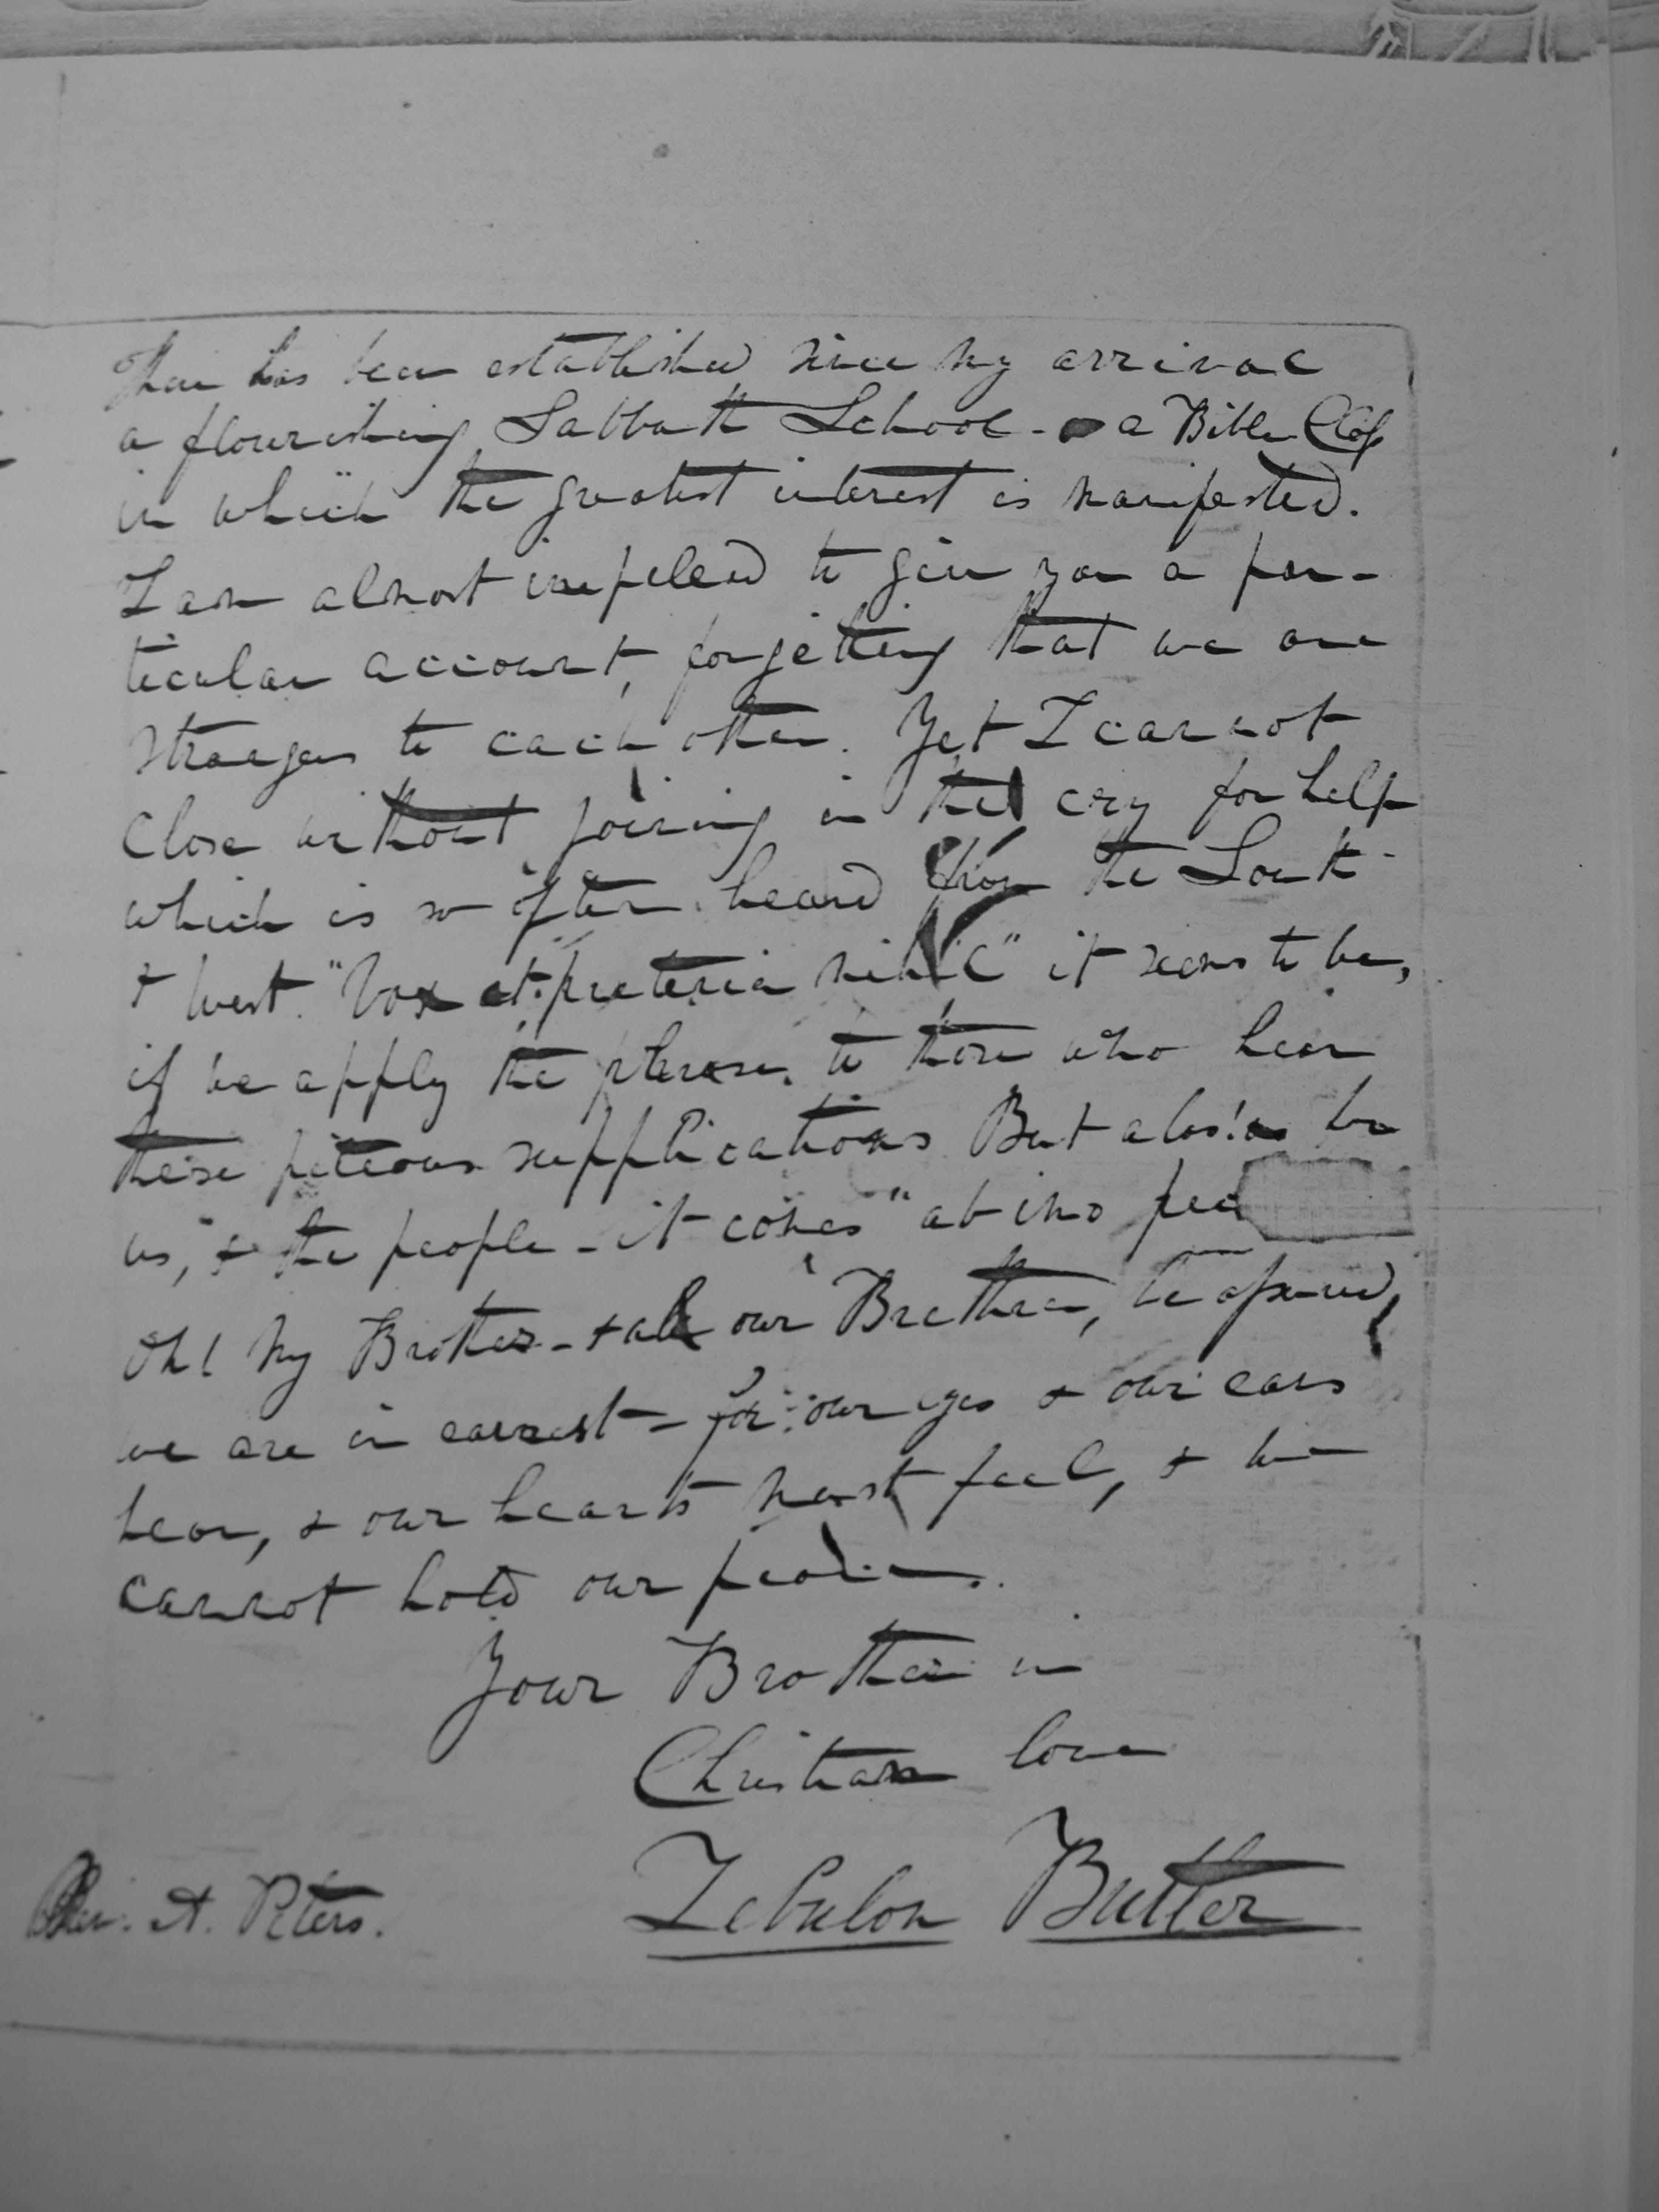 There has been established since my arrival
a flourishing Sabbath School - a Bible Class
in which the greatest interest is manifested.
I am almost impeled to give you a par-
ticular account, forgetting that we are
strangers to each other. Yet I cannot
close without joining in the cry for help
which is so often heard from the South
& West. "Vox et preteria nihil" it seems to be,
if we apply the phrase to those who hear
these piteous supplications But alas! as for
us, & the people - it comes "ab imo pec
Oh! my Brother - & all our Brethren, be assured,
we are in earnest - for our eyes & our ears
hear, & our hearts must feel, & we
cannot hold our peace.
Your Brother in
Christian love
Zebulon Butler
Rev. A. Peters.